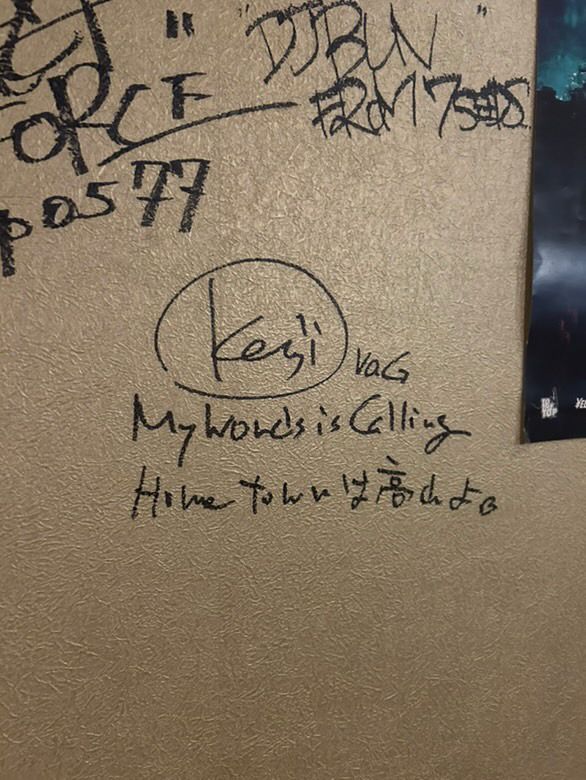 "DJ BUN"
FROM 7SEEDS
FORCE
pos577
Kenji VaG
My Words is Calling
Home Townは高山よ。